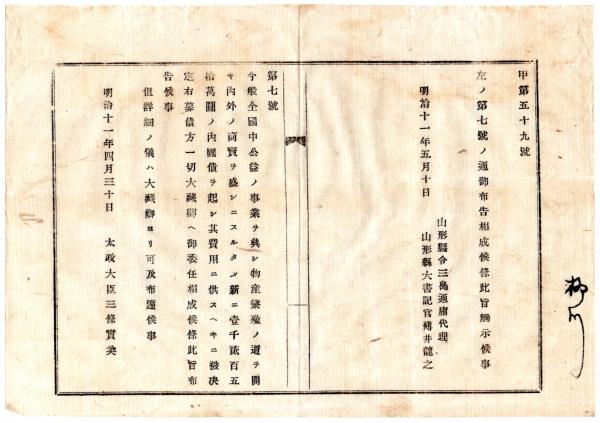 甲第五十九號
左ノ第七號ノ通御布告相成候條此旨觸示候事
山形縣令三島通庸代理
明治十一年五月十日　山形縣大書記官薄井龍之
第七號
今般全國中公益ノ事業ヲ興シ物産繁殖ノ道ヲ開
キ內外ノ商賣ヲ盛ンニスルタメ新ニ壹千貳百五
拾萬圓ノ內國債ヲ起シ其費用ニ供スヘキニ發决
定右募債方一切大藏卿ヘ御委任相成候條此旨布
告候事
但詳細ノ儀ハ大藏卿ヨリ可及布達候事
明治十一年四月三十日　太政大臣三條實美
柳川